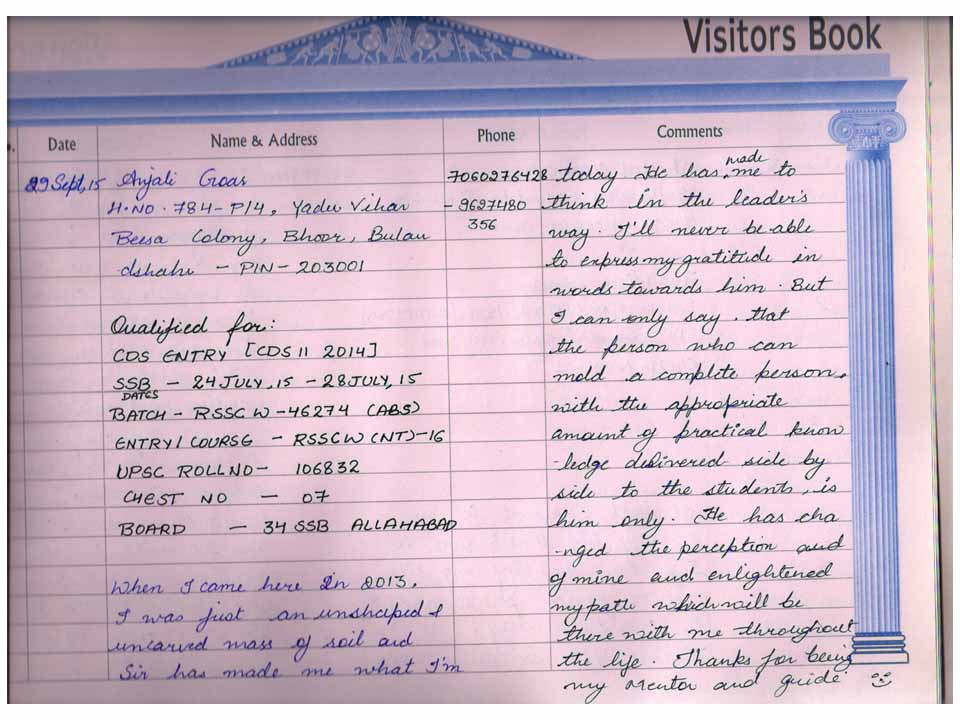 Visitors Book
Date Name & Address Phone Comments
29 Sept, 15
Anjali Goas
H.NO. 784-P/4, Yadu Vihar
Beesa Colony, Bhoor, Bulan
dshahr - PIN - 203001
Qualified for:
CDS ENTRY [CDS II 2014]
SSB - 24 JULY, 15 - 28 JULY, 15
DATES
BATCH - RSSC W - 46274 (ABS)
ENTRY/COURSE - RSSCW (NT)-16
UPSC ROLL NO - 106832
CHEST NO - 07
BOARD - 34 SSB ALLAHABAD
When I came here In 2013.
I was just an unshaped &
uncarved mass of soil and
Sir has made me what I'm
7060276428
- 9627480
356
today He has made me to
think in the leader's
way. I'll never be able
to express my gratitude in
words towards him. But
I can only say. that
the person who can
mold a complete person.
with the appropriate
amount of practical know
-ledge delivered side by
side to the students, is
him only. He has cha
-nged the perception and
of mine and enlightened
my path which will be
there with me throughout
the life. Thanks for being
my Mentor and guide